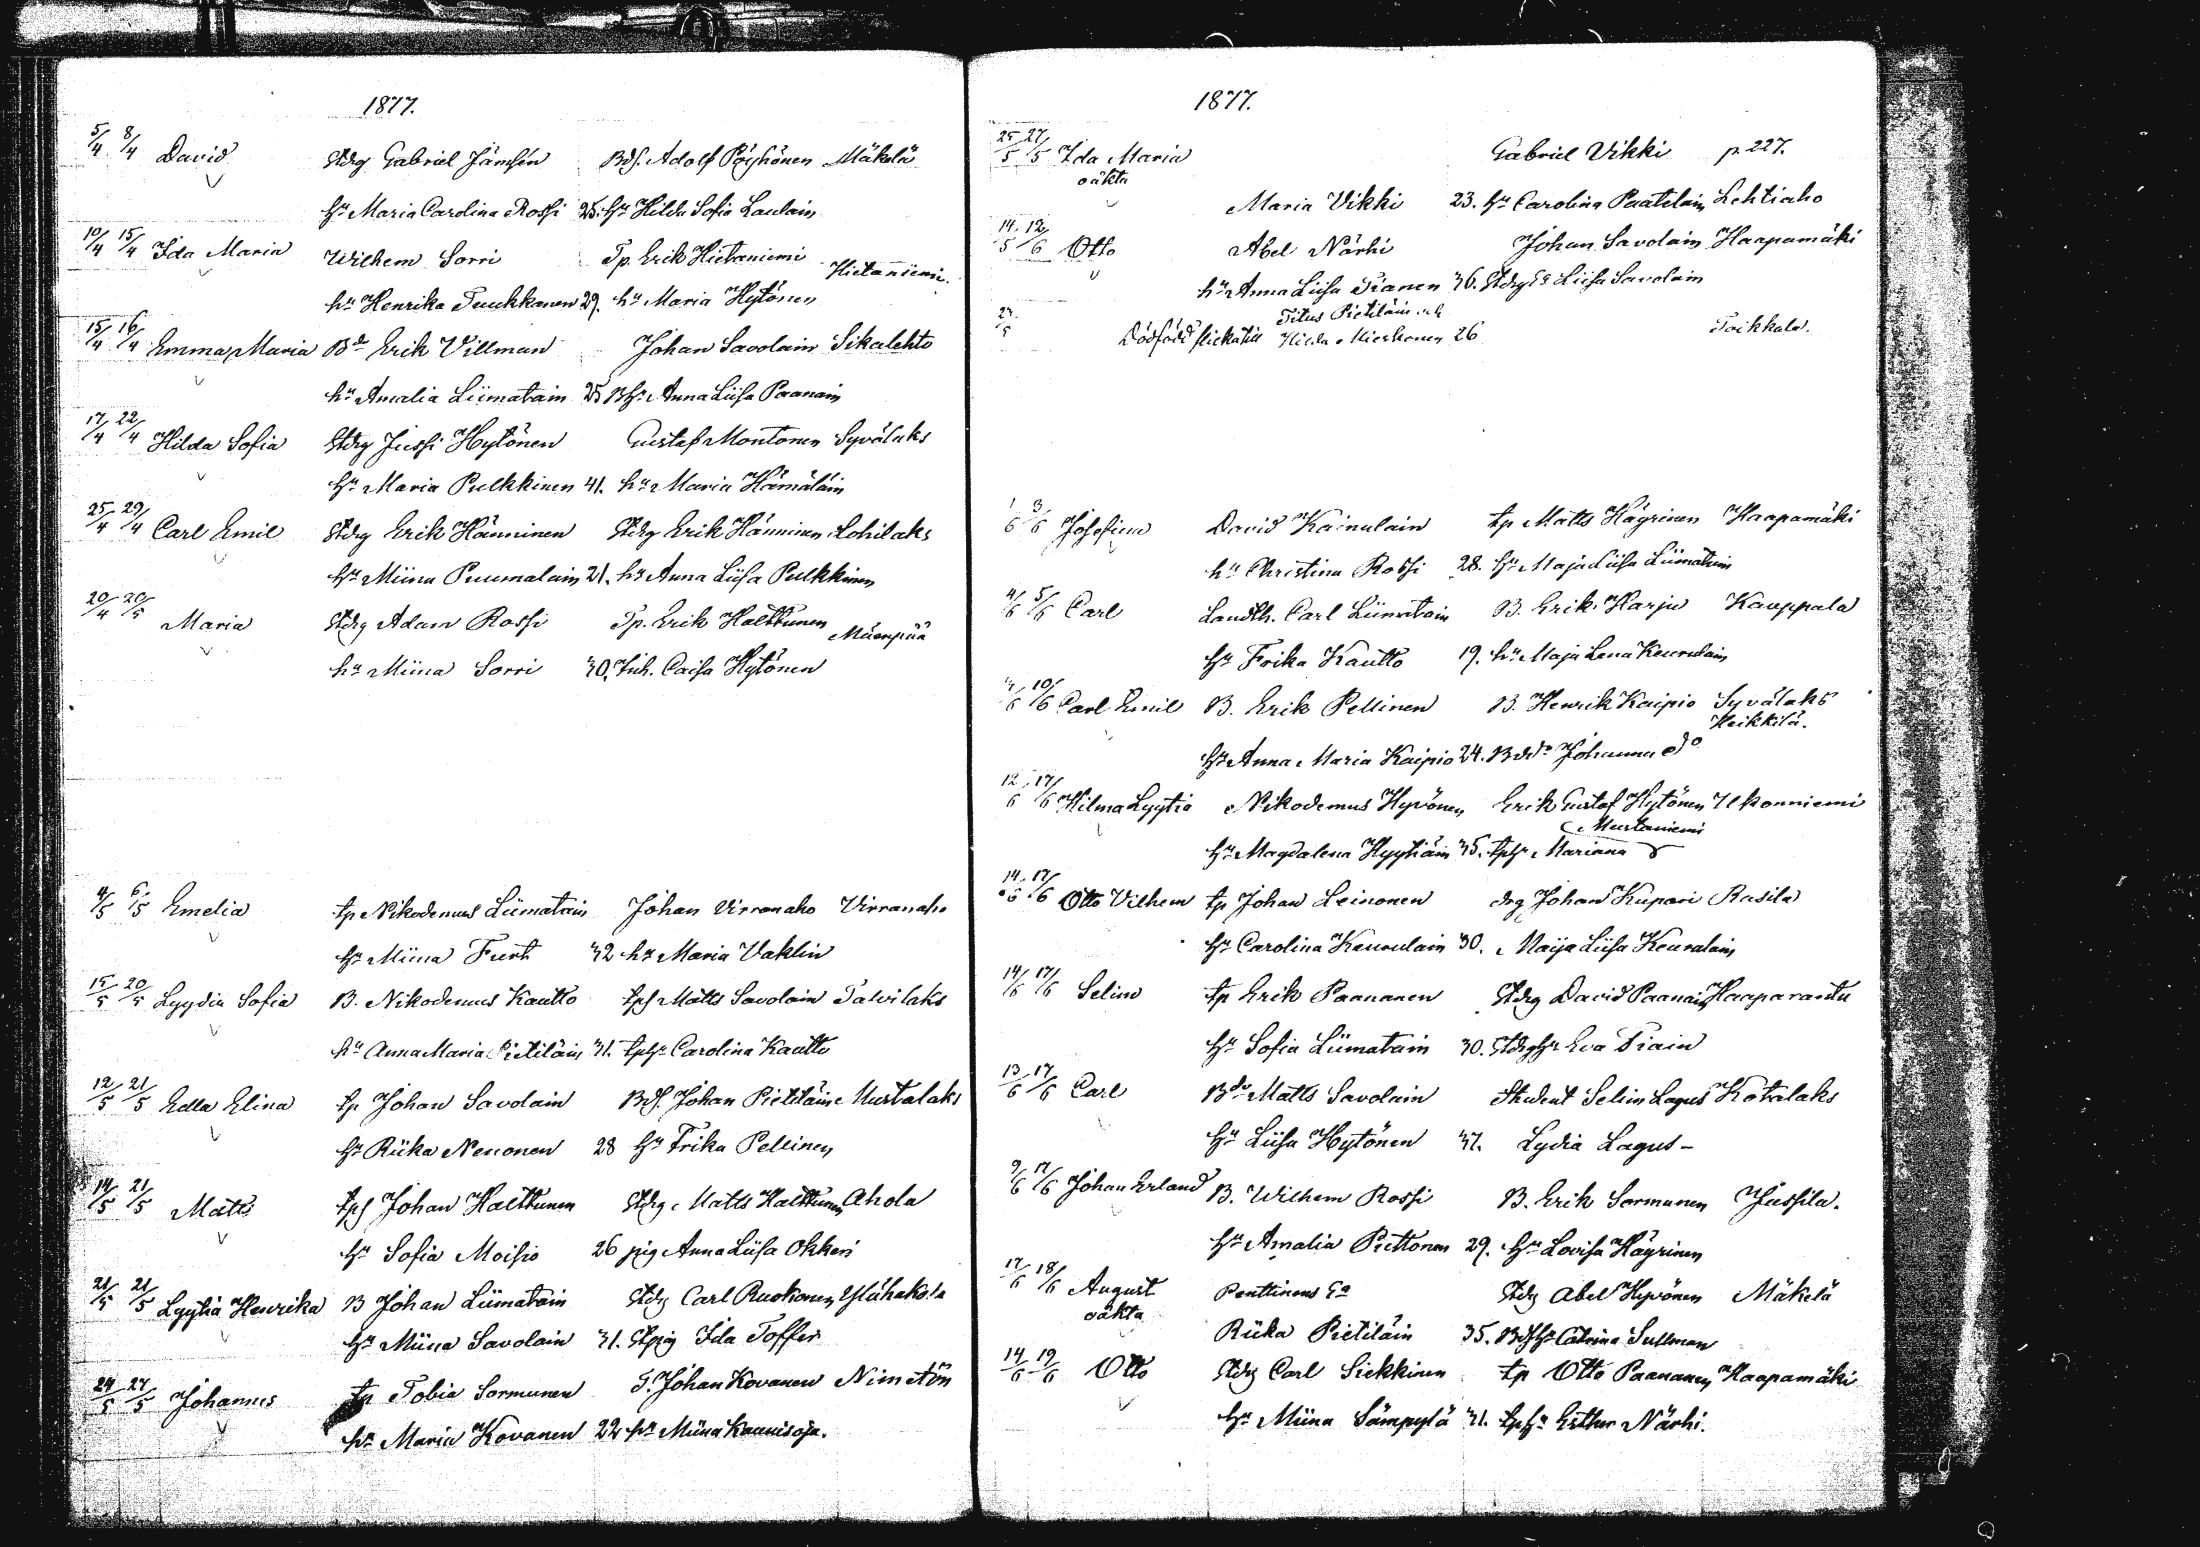 1877.
5/4 8/4 David Stdrg Gabriel Jämsén Bdf. Adolf Pöyhönen Mäkelä
hu Maria Carolina Rossi 25. hu Hilda Sofia Laulain
10/4 15/4 Ida Maria Wilhem Sorri Tp. Erik Hietaniemi Hietaniemi.
hu Henrika Tuuhkanen 29. hu Maria Hytönen
15/4 16/4 Emma Maria Bde Erik Villman Johan Savolain Sikalehto
hu Amalia Liimatain 25 Bhu Anna Liisa Paanain
17/4 22/4 Hilda Sofia Stdrg Jussi Hytönen Gustaf Montonen Syvälaks
hu Maria Pulkkinen 41. hu Maria Hämäläin
25/4 29/4 Carl Emil Stdrg Erik Hänninen Stdrg Erik Hänninen Lohilaks
hu Miina Puumalain 21. hu Anna Liisa Pulkkinen
20/4 20/5 Maria Stdrg Adam Rossi Tp. Erik Halttunen Mäenpää
hu Miina Sorri 30. Inh. Caisa Hytönen
4/5 6/5 Emelia tp Nikodemus Liimatain Johan Virranaho Virranaho
hu Miina Turt 32 hu Maria Vaklin
15/5 20/5 Lyydia Sofia B. Nikodemus Kautto tpf Matts Savolain Talvilaks
hu Anna Maria Pietiläin 31. tphu Carolina Kautto
12/5 21/5 Edla Elina tp Johan Savolain Bdf. Johan Pietiläin Mustalaks
hu Riika Nenonen 28 hu Frika Pellinen
14/5 21/5 Matts tpf Johan Halttunen Stdrg Matts Halttunen Ahola
hu Sofia Moisio 26 pig Anna Liisa Okkeri
21/5 21/5 Lyytia Henrika B Johan Liimatain Stdrg Carl Ruokonen Ylähakola
hu Miina Savolain 31. Stpig Ida Toffer
24/5 27/5 Johannes tp Tobia Sormunen T. Johan Kovanen Nimetön
hu Maria Kovanen 22 hu Miina Kaunisoja.
1877.
25/5 27/5 Ida Maria Gabriel Vikki p. 227.
oäkta
Maria Vikki 23. hu Carolina Paatelain Lehtiaho
14/5 12/6 Otto Abel Närhi Johan Savolain Haapamäki
hu Anna Liisa Pianen 36. Stdrgea Liisa Savolain
Titus Pietiläin och
/5 Dödfödd flicka till Hilda Mieskonen 26 Toikkala.
1/6 3/6 Josefina David Kainulain tp Matts Häyrinen Haapamäki
hu Christina Rossi 28. hu Maja Liisa Liimatain
4/6 5/6 Carl Landth. Carl Liimatain B. Erik Harju Kauppala
hu Frika Kautto 19. hu Maja Lena Keurulain
/6 10/6 Carl Emil B. Erik Pellinen B. Henrik Kaipio Syvälaks
Heikkilä.
hu Anna Maria Kaipio 24. Bdtr Johanna do
12/6 17/6 Hilma Lyytia Nikodemus Hyvönen Erik Gustaf Hytönen Ukonniemi
Mustaniemi
hu Magdalena Hyytiäin 35. tphu Marianna
14/6 17/6 Otto Vilhem tp Johan Leinonen drg Johan Kupari Rasila
hu Carolina Keurulain 30. Maija Liisa Keurulain
14/6 17/6 Selim tp Erik Paananen Stdrg David Paanain Haaparanta
hu Sofia Liimatain 30. Stdrghu Eva Piain
13/6 17/6 Carl Bde Matts Savolain Student Selim Lagus Kotalaks
hu Liisa Hytönen 37. Lydia Lagus -
9/6 17/6 Johan Erland B. Wilhem Rossi B. Erik Sormunen Jussila.
hu Amalia Puttonen 29. hu Lovisa Häyrinen
17/6 18/6 August Penttinens Ea Stdrg Abel Hyvönen Mäkelä
oäkta
Riika Pietiläin 35. Bdfhu Catrina Sullman
14/6 19/6 Otto Stdrg Carl Siekkinen tp Otto Paananen Haapamäki
hu Miina Sämpylä 31. tphu Esther Närhi.